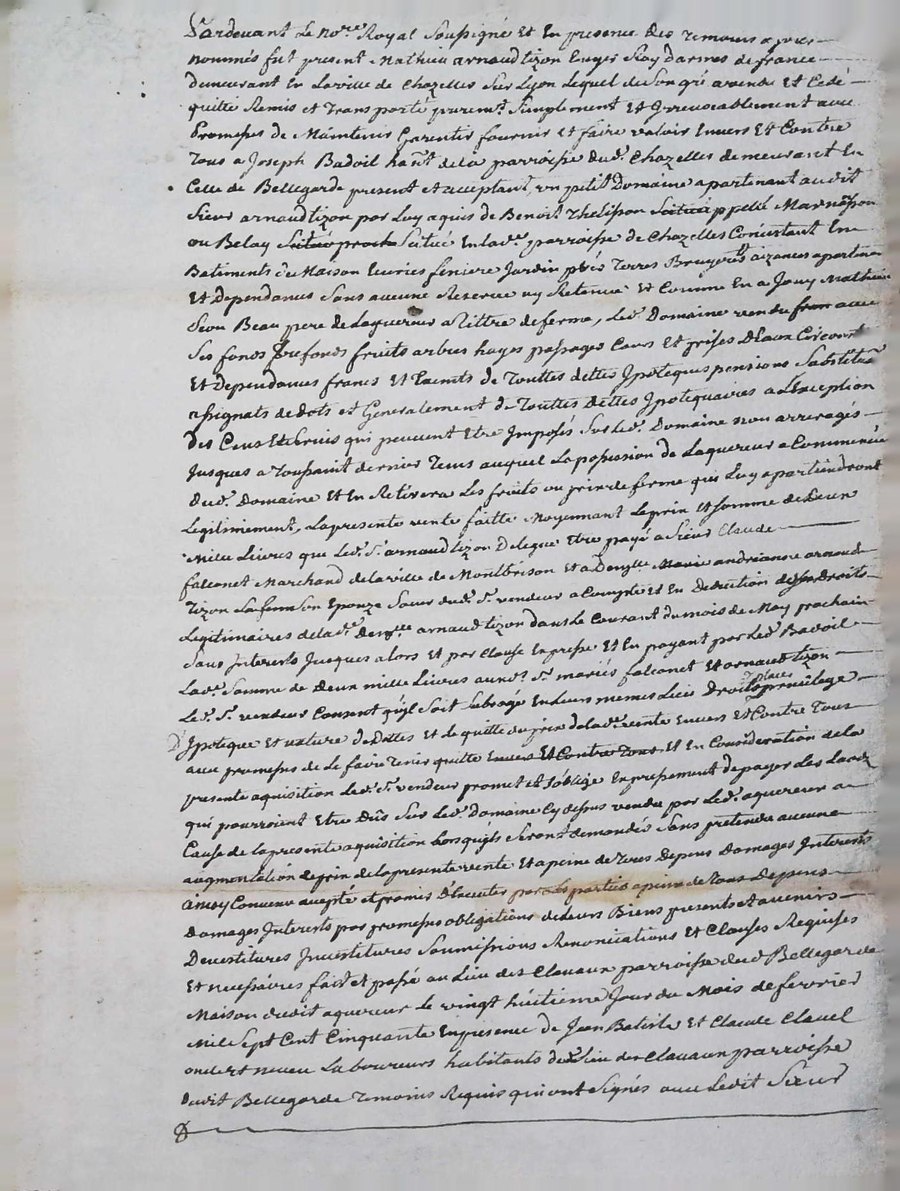 Pardevant Le no.re Royal Soussigné Et En presence Des Temoins apres
nommés fut present Mathieu arnaudtizon Euyer Roy darmes de france
demeurant En Laville de Chazelles Sur Lyon Lequel de Son gré avendu Et Cedé
quitté Remis et Transporté purem.t Simplement Et Irrevocablement avec
Promesses de Maintenir Garentir fournir Et faire valoir Envers Et Contre
Tous a Joseph Badoil hañt dela parroisse dud. Chazelles demeurant En
Celle de Bellegarde present et acceptant, un petit Domaine apartenant audit
Sieur arnaudtizon par Luy aquis de Benoit Thelisson Scitué appellé
ou Belay Scitué proche Scitué Enlad.e parroisse de Chazelles Concistant En
Batiments de Maison Ecuries feniere Jardin prés Terres Bruyeres aizances apartenan
Et dependances Sans aucune Reserve ny Retenue Et Comme En a Jouy Mathieu
Beau pere de Laquereur a Tittre de ferme, Led. Domaine vendu franc avec
Ses fonds Trefonds fruits arbres hayes passages Cours Et prises D'Eaux
Et dependances francs Et Exemts de Touttes dettes Ipoteques pensions
assignats de dots et Generalement de Touttes dettes Ipotequaires a L'Exception
des Cens Et Servis qui peuvent Etre Imposés Sur Led. Domaine non arreragés
Jusques a Toussaint dernier Tems auquel La possession de Laquereur a Commencée
Dud. Domaine Et En Retirera Les fruits ou prix de ferme qui Luy apartiendront
Legitimement, Lapresente vente faitte Moyennant Leprix Et Somme de Deux
Mille Livres que Led. S.r arnaudtizon Delegue Etre payé a Sieur Claude
falconet Marchand de la ville de Montbrison Et a Demz.lle Marie andrianne arnaud
Tizon Lafemme Son Epouze Sœur dud. S.r vendeur a Compte Et En Deduction de Ses Droits
Legitimaires de lad.e Dem.lle arnaudtizon dans Le Courant du mois de May prochain
Sans Interests Jusques alors Et par Clause Expresse Et En payant par Led. Badoil
Lad.e Somme de Deux mille Livres aux S.r mariés falconet Et arnaud tizon
places
Le d. S.r vendeur Consent qu'jl Soit Subrogé En Leurs memes Lieu Droits privilege
Ipoteque Et nature de Dettes Et de quitte du prix de lad.e vente Envers Et Contre Tous
avec promesses de le faire Tenir quitte Envers Et Contre Tous Et En Consideration de la
presente aquisition Led. S.r vendeur promet Et S'oblige Expressement de payer Les Laods
qui pourroient Etre Dûs Sur Led. Domaine Cy dessus vendu par Led. aquereur a
Cause de lapresente aquisition Lorsquils Seront demandés Sans pretendre aucune
augmentation de prix de lapresente vente Et a peine de Tous Depens Domages Interests
ainsy Convenu accepté et promis D'Executer par Les parties a peine de Tous Depens
Domages Interests par promesses obligations de leurs Biens presents Et avenirs
Devestitures Investitures Soumissions Renonciations Et Clauses Requises
Et necessaires fait et passé au Lieu des Clavaux parroisse dud. Bellegarde
Maison dudit aquereur Le vingt huitieme Jour du Mois de fevrier
Mil Sept Cent Cinquante En presence de Jean Batiste Et Claude Clavel
oncle et neveu Laboureurs habitants du Lieu des Clavaux parroisse
dudit Bellegarde Temoins Requis qui ont Signés avec Ledit Sieur